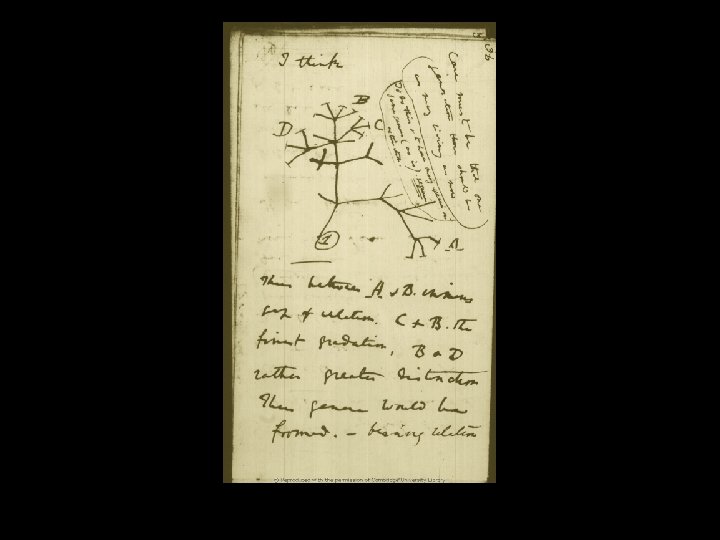 36
I think
Case must be that one
generation then should be
as many living as now
To do this & to have many species in
same genus (as is) requires
extinction.
B
D
C
A
1
Thus between A & B. immens
gap of relation. C & B. the
finest gradation, B & D
rather greater distinction
Thus genera would be
formed. — bearing relation
© Reproduced with the permission of Cambridge University Library